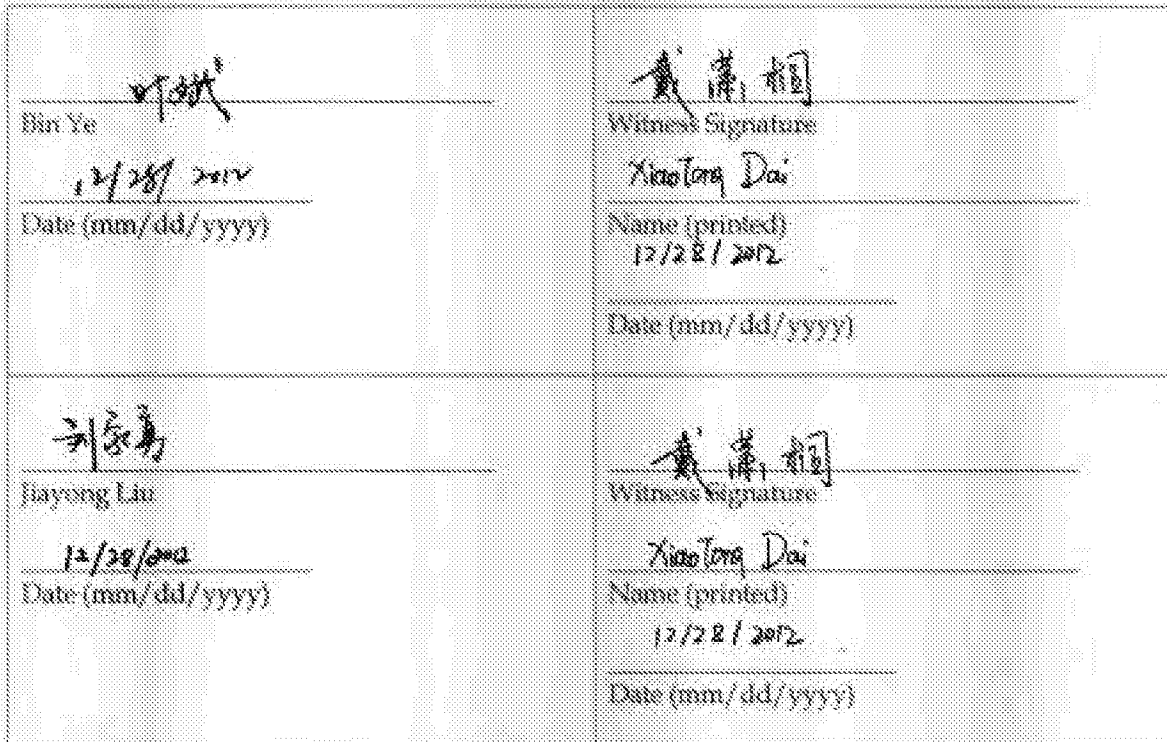 Bin Ye
12/28/2012
Date (mm/dd/yyyy)
戴潇桐
Witness Signature
XiaoTong Dai
Name (printed)
12/28/2012
Date (mm/dd/yyyy)
刘家勇
Jiayong Liu
12/28/2012
Date (mm/dd/yyyy)
戴潇桐
Witness Signature
XiaoTong Dai
Name (printed)
12/28/2012
Date (mm/dd/yyyy)